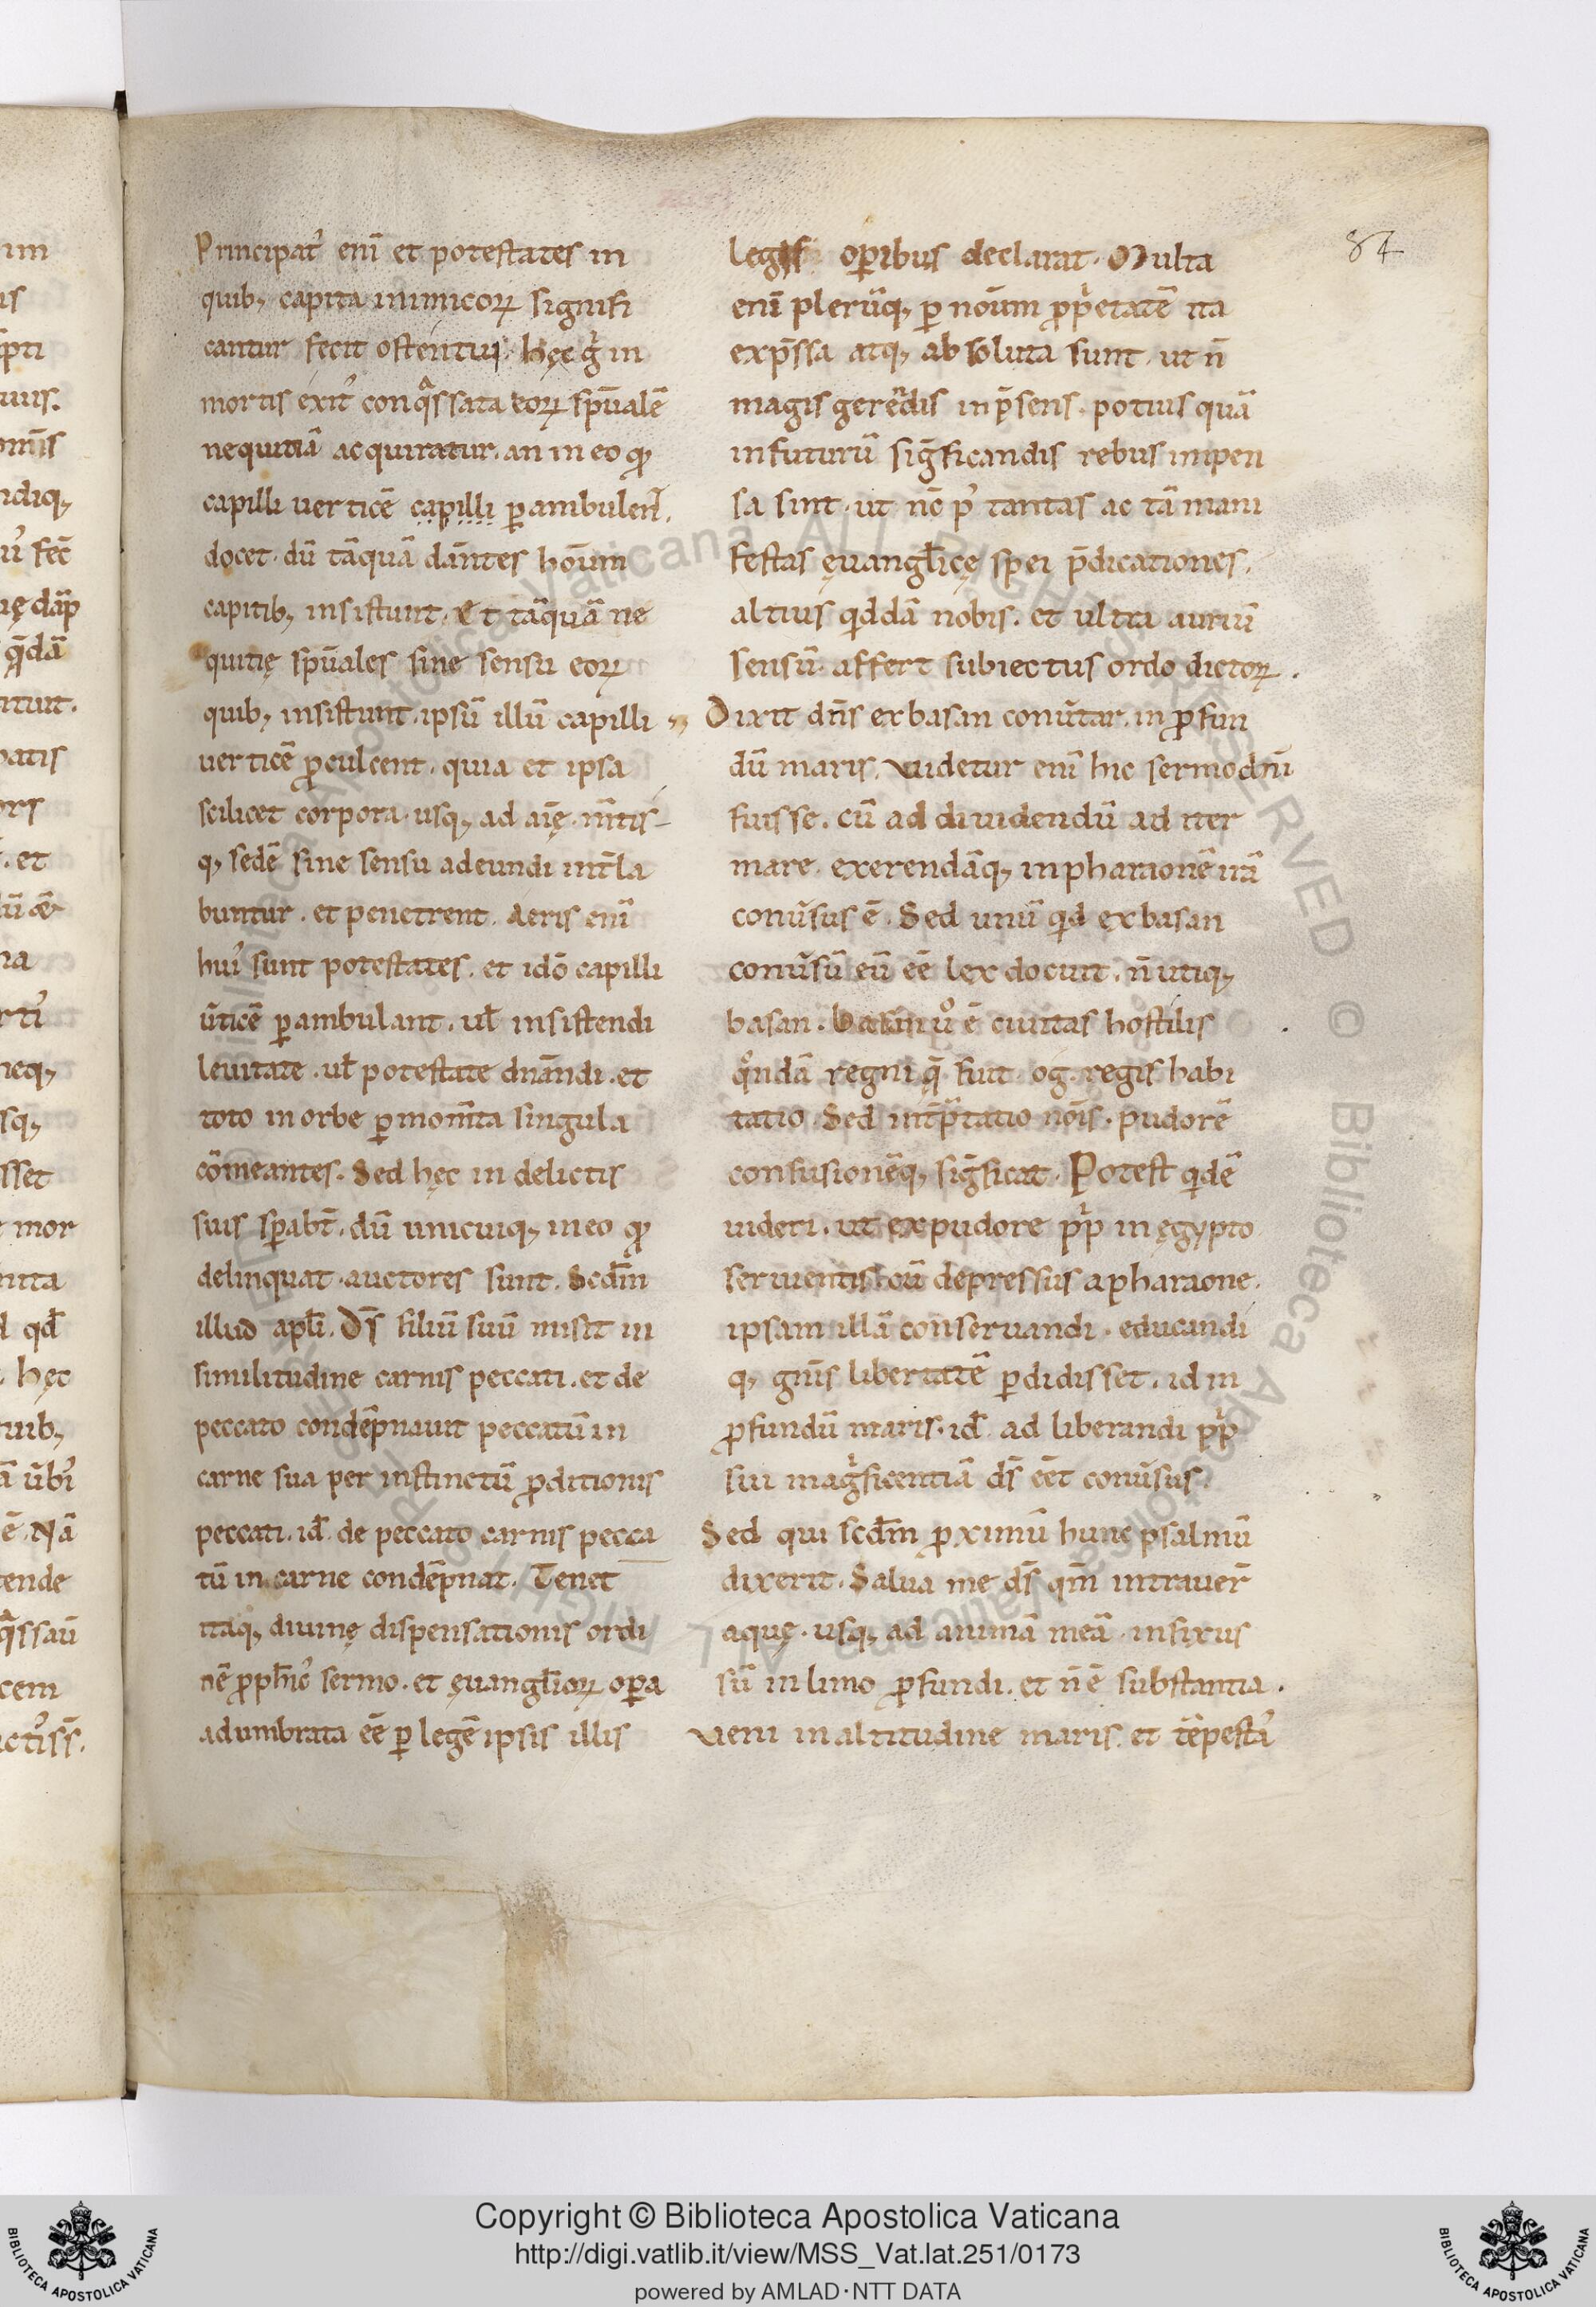 84
Principat᾽ enī et potestates in
quib; capita inimicoꝝ signifi
cantur fecit ostentui. hęc gͥ in
mortis exit᾽ conqͣssata eoꝝ spūalē
nequitiā acquiratur. an in eo qđ
capilli uerticē capilli ꝑambulent̄.
docet. dū tāquā dān̄tes hoīum
capitib; insistunt. Et tāquā ne
quitię spūales sine sensu eoꝝ
quib; insistunt. ipsū illū capilli
uerticē ꝓculcent. quia et ipsa
scilicet corpora. usq; ad aīę. m̄tis
q; sedē sine sensu adeundi int̄la
buntur. et penetrent. Aeris enī
hui᾽ sunt potestates. et idō capilli
ūticē ꝑambulant. uł insistendi
leuitate. uł potestate dnāndi. et
toto in orbe ꝑ mom̄ta singula
cōmeantes. Sed hęc in delictis
suis sꝑabt̄. dū unicuiq; in eo qđ
delinquat. auctores sunt. Scdm̄
illud apłi. Ds̄ filiū suū misit in
similitudine carnis peccati. et de
peccato condēpnauit peccatū in
carne sua per instinctū ꝓditionis
peccati. id̄. de peccato carnis pecca
tū in carne condēpnat. Tenet
itaq; diuinę dispensationis ordi
nē ꝓph̄ic᾽ sermo. et ęuangl̄ioꝝ oꝑa
adumbrata eē ꝑ legē ipsis illis
legis oꝑibus declarat. Multa
enī plerūq; ꝑ noīum ꝓpͥetatē ita
exp̄ssa atq; absoluta sunt. ut n̄
magis gerēdis in p̄sens. potius quā
in futurū siḡficandis rebus inpen
sa sint. ut nc̄ p᾽ tantas ac tā mani
festas ęuangl̄icę spei p̄dicationes.
altius qͥddā nobis. et ultra auriū
sensū affert subiectus ordo dictoꝝ.
Dixit dn̄s ex basan conūtar. in ꝓfun
dū maris. Videtur enī hic sermo dnī
fuisse. cū ad diuidendū ad iter
mare. exerendāq; in pharaonē irā
conūsus ē. Sed unū qͥd ex basan
conūsū eū eē lex docuit. n̄ utiq;
basan. Basan uͦ ē ciuitas hostilis
qͦndā regni. q̄ fuit. og. regis habi
tatio. Sed int̄pͣtatio noīs. pudorē
confusionēq; siḡficat. Potest qͥdē
uideri. ut ex pudore pp̄ͥ in ęgypto
seruientis. cū depressus a pharaone.
ipsam illā conseruandi. educandi
q; gn̄is libertatē ꝑdidisset. id in
ꝓfundū maris. id̄ ad liberandi pp̄ͥ
sui magͥficentiā ds̄ eēt conūsus.
Sed qui scdm̄ ꝓximū hunc psalmū
dixerit. Salua me ds̄ qm̄ intrauer̄
aquę. usq; ad animā meā. infixus
sū in limo ꝓfundi. et n̄ ē substantia.
Veni in altitudine maris. et tēpesta᾽
im
is
omīs
ndiq;
ū᾽ fec̄
q̄dā
patis
ors
. et
na
neq;
sq;
sset
mor
nita
qd̄
. hęc
uib;
ē. Nā
ende
cem
Copyright © Biblioteca Apostolica Vaticana
http://digi.vatlib.it/view/MSS_Vat.lat.251/0173
powered by AMLAD·NTT DATA
BIBLIOTECA APOSTOLICA VATICANA
BIBLIOTECA APOSTOLICA VATICANA